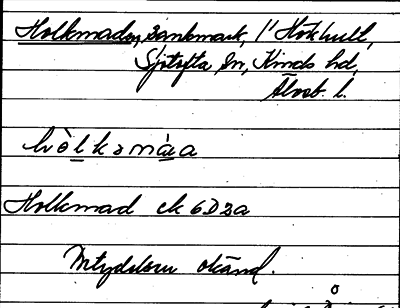 Holkmaden, sankmark, 1" Hökhult,
Sjötofta sn, Kinds hd,
Älvsb. l.
hòlkəmàa
Holkmad ek 6D2a
Betydelsen okänd.